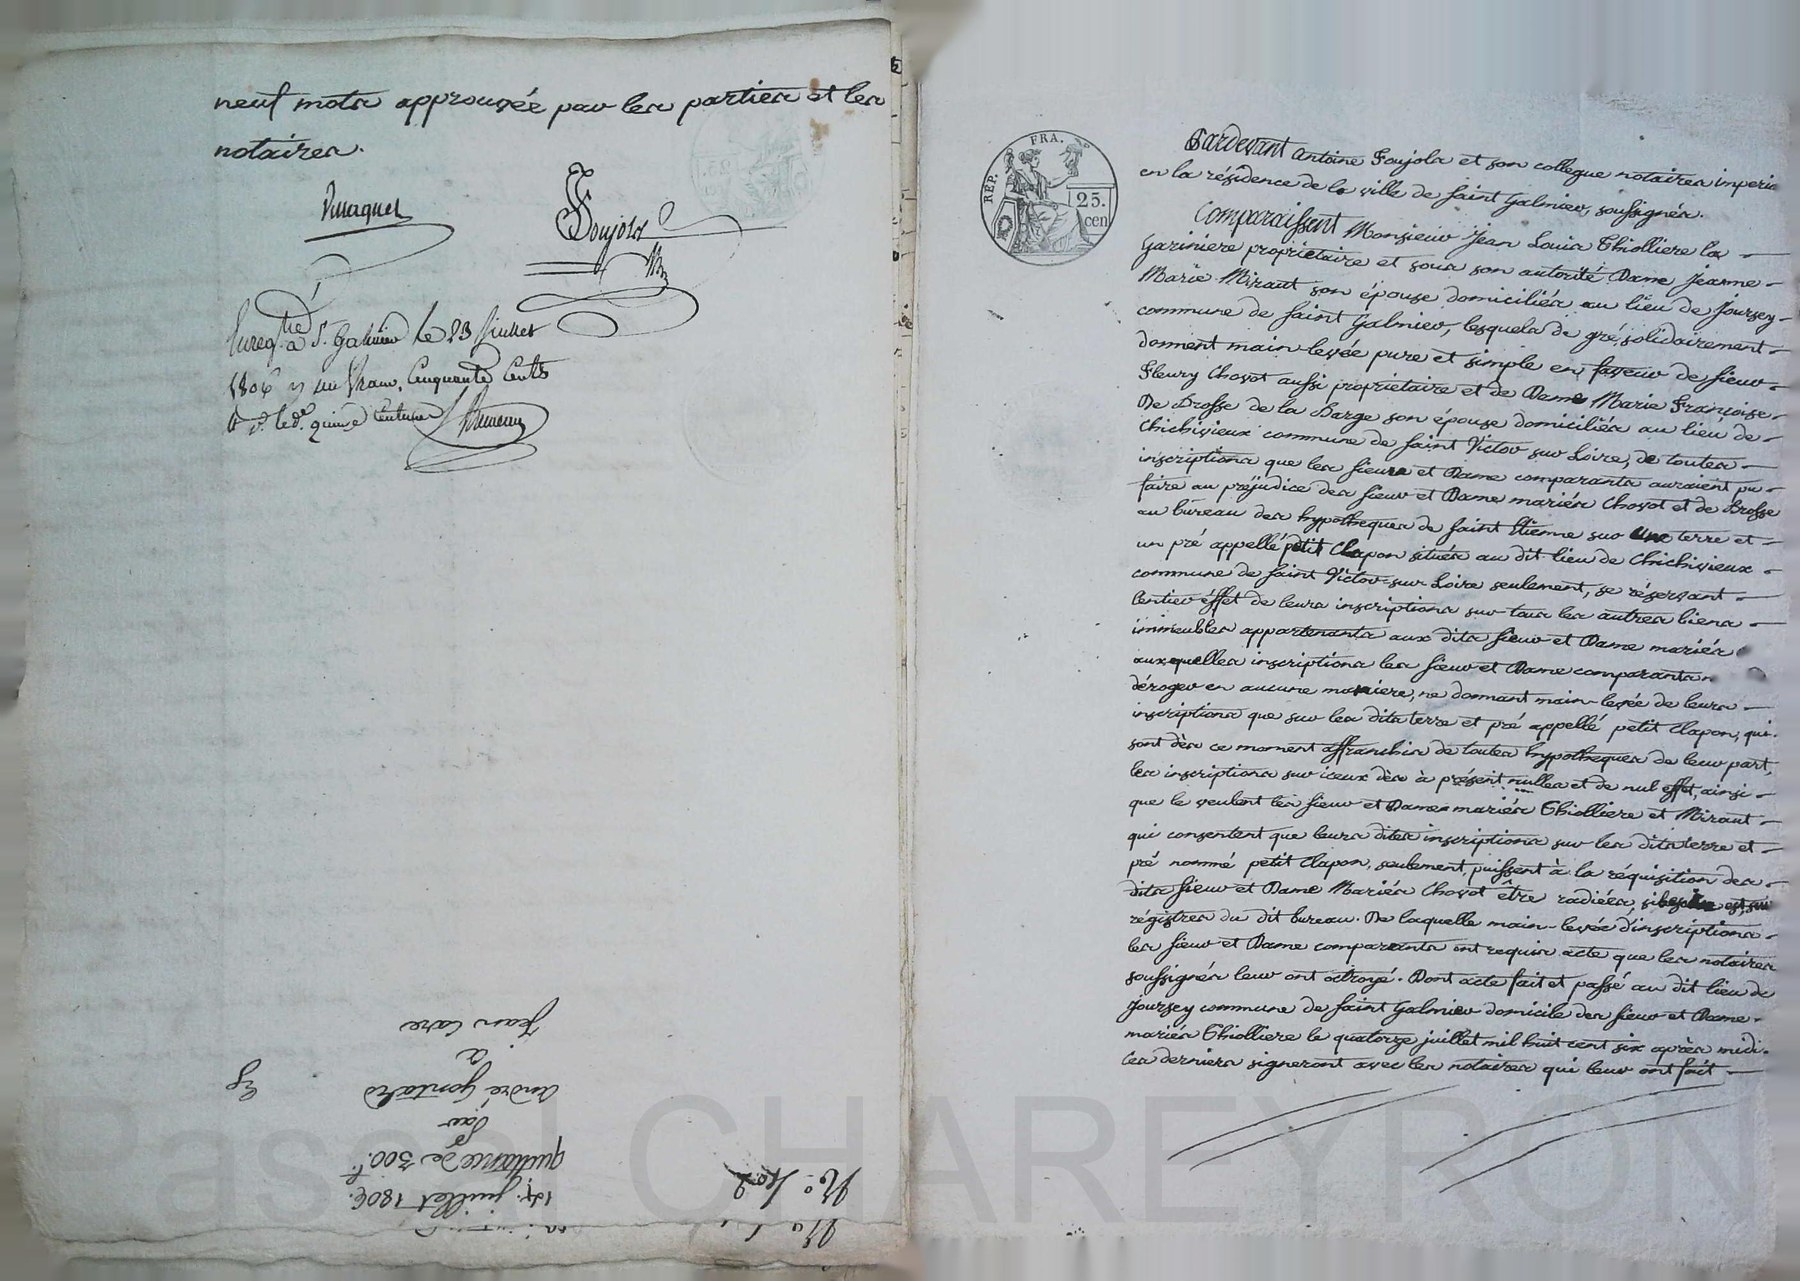 neuf mots approuvée par les parties et les
notaires.
Soujols
Enreg.tré à St. Galmier le 23 Juillet
1806 un franc, Cinquante Cents
quinze Centimes
Jean
à
André Gontard
par
quittance de 300.f
14. juillet 1806.
N.° 402
REP. FRA.
25.
cen
Pardevant Antoine Soujols et son collegue notaires imperi
en la résidence de la ville de Saint Galmier, soussignés.
Comparaissent Monsieur Jean Louis Thiolliere la
Gariniere propriétaire et sous son autorité Dame Jeanne
Marie Miraut son épouse domiciliés au lieu de Joursey
commune de Saint Galmier, lesquels de gré, solidairement
donnent main-levée pure et simple en faveur de sieur
Fleury Chovot aussi propriétaire et de Dame Marie Françoise
De Brosse de la Barge son épouse domiciliés au lieu de
Chichivieux commune de Saint Victor sur Loire, de toutes
inscriptions que les sieurs et Dame comparants auraient pu
faire au préjudice des sieur et Dame mariés Chovot et de Brosse
au bureau des hypotheques de Saint Etienne sur une terre et
un pré appellé petit Clapon situés au dit lieu de Chichivieux
commune de Saint Victor-sur Loire seulement, se réservant
l'entier éffet de leurs inscriptions sur tous les autres biens
immeubles appartenants aux dits sieur et Dame mariés
auxquelles inscriptions les sieur et Dame comparants
déroger en aucune maniere, ne donnant main-levée de leurs
inscriptions que sur les dits terre et pré appellé petit Clapon, qui
sont dès ce moment affranchis de toutes hypotheques de leur part,
les inscriptions sur iceux dès à présent nulles et de nul effet, ainsi
que le veulent les sieur et Dame mariés Thiolliere et Miraut
qui consentent que leurs dites inscriptions sur les dits terre et
pré nommé petit Clapon, seulement, puissent à la réquisition des
dits sieur et Dame Mariés Chovot être radiées, si besoin est, sur
régistres du dit bureau. De laquelle main-levée d'inscriptions
les sieur et Dame comparants ont requis acte que les notaires
soussignés leur ont octroyé. Dont acte fait et passé au dit lieu de
Joursey commune de Saint Galmier domicile des sieur et Dame
mariés Thiolliere le quatorze juillet mil huit cent six après midi.
Ces derniers signeront avec les notaires qui leur ont fait
Pascal CHAREYRON